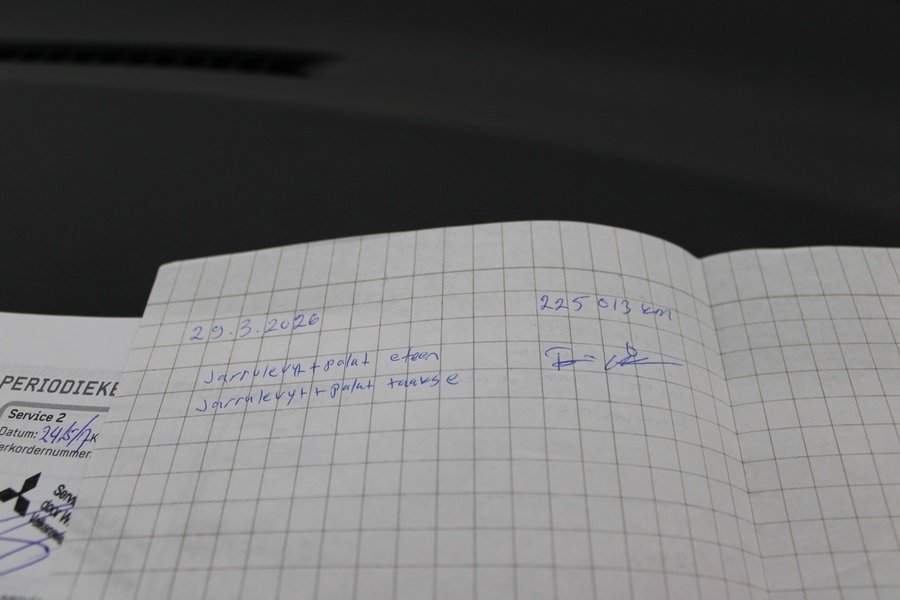 29.3.2026
225 013 km
Jarrulevyt + palat eteen
Jarrulevyt + palat taakse
PERIODIEKE
Service 2
Datum: 24/5/17 K
erkordernummer
Serv
door